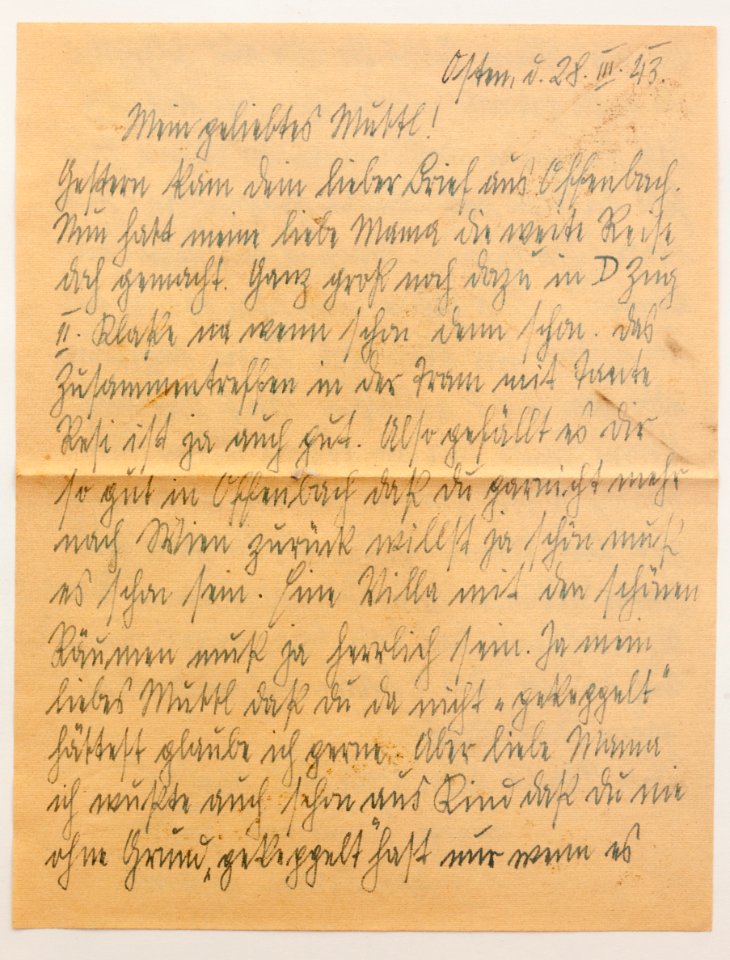 Osten, d. 28. III. 43.
Mein geliebtes Muttl!
Gestern kam dein lieber Brief aus Offenbach.
Nun hast meine liebe Mama die weite Reise
doch gemacht. Ganz groß noch dazu in D Zug
II. Klaße na wenn schon denn schon. Das
Zusammentreffen in der Tram mit Tante
Resi ist ja auch gut. Also gefällt es dir
so gut in Offenbach daß du garnicht mehr
nach Wien zurück willst ja schön muß
es schon sein. Eine Villa mit den schönen
Räumen muß ja herrlich sein. Ja mein
liebes Muttl daß du da nicht „gekeppelt"
hättest glaube ich gerne. Aber liebe Mama
ich wußte auch schon aus Kind daß du nie
ohne Grund „gekeppelt" hast nur wenn es